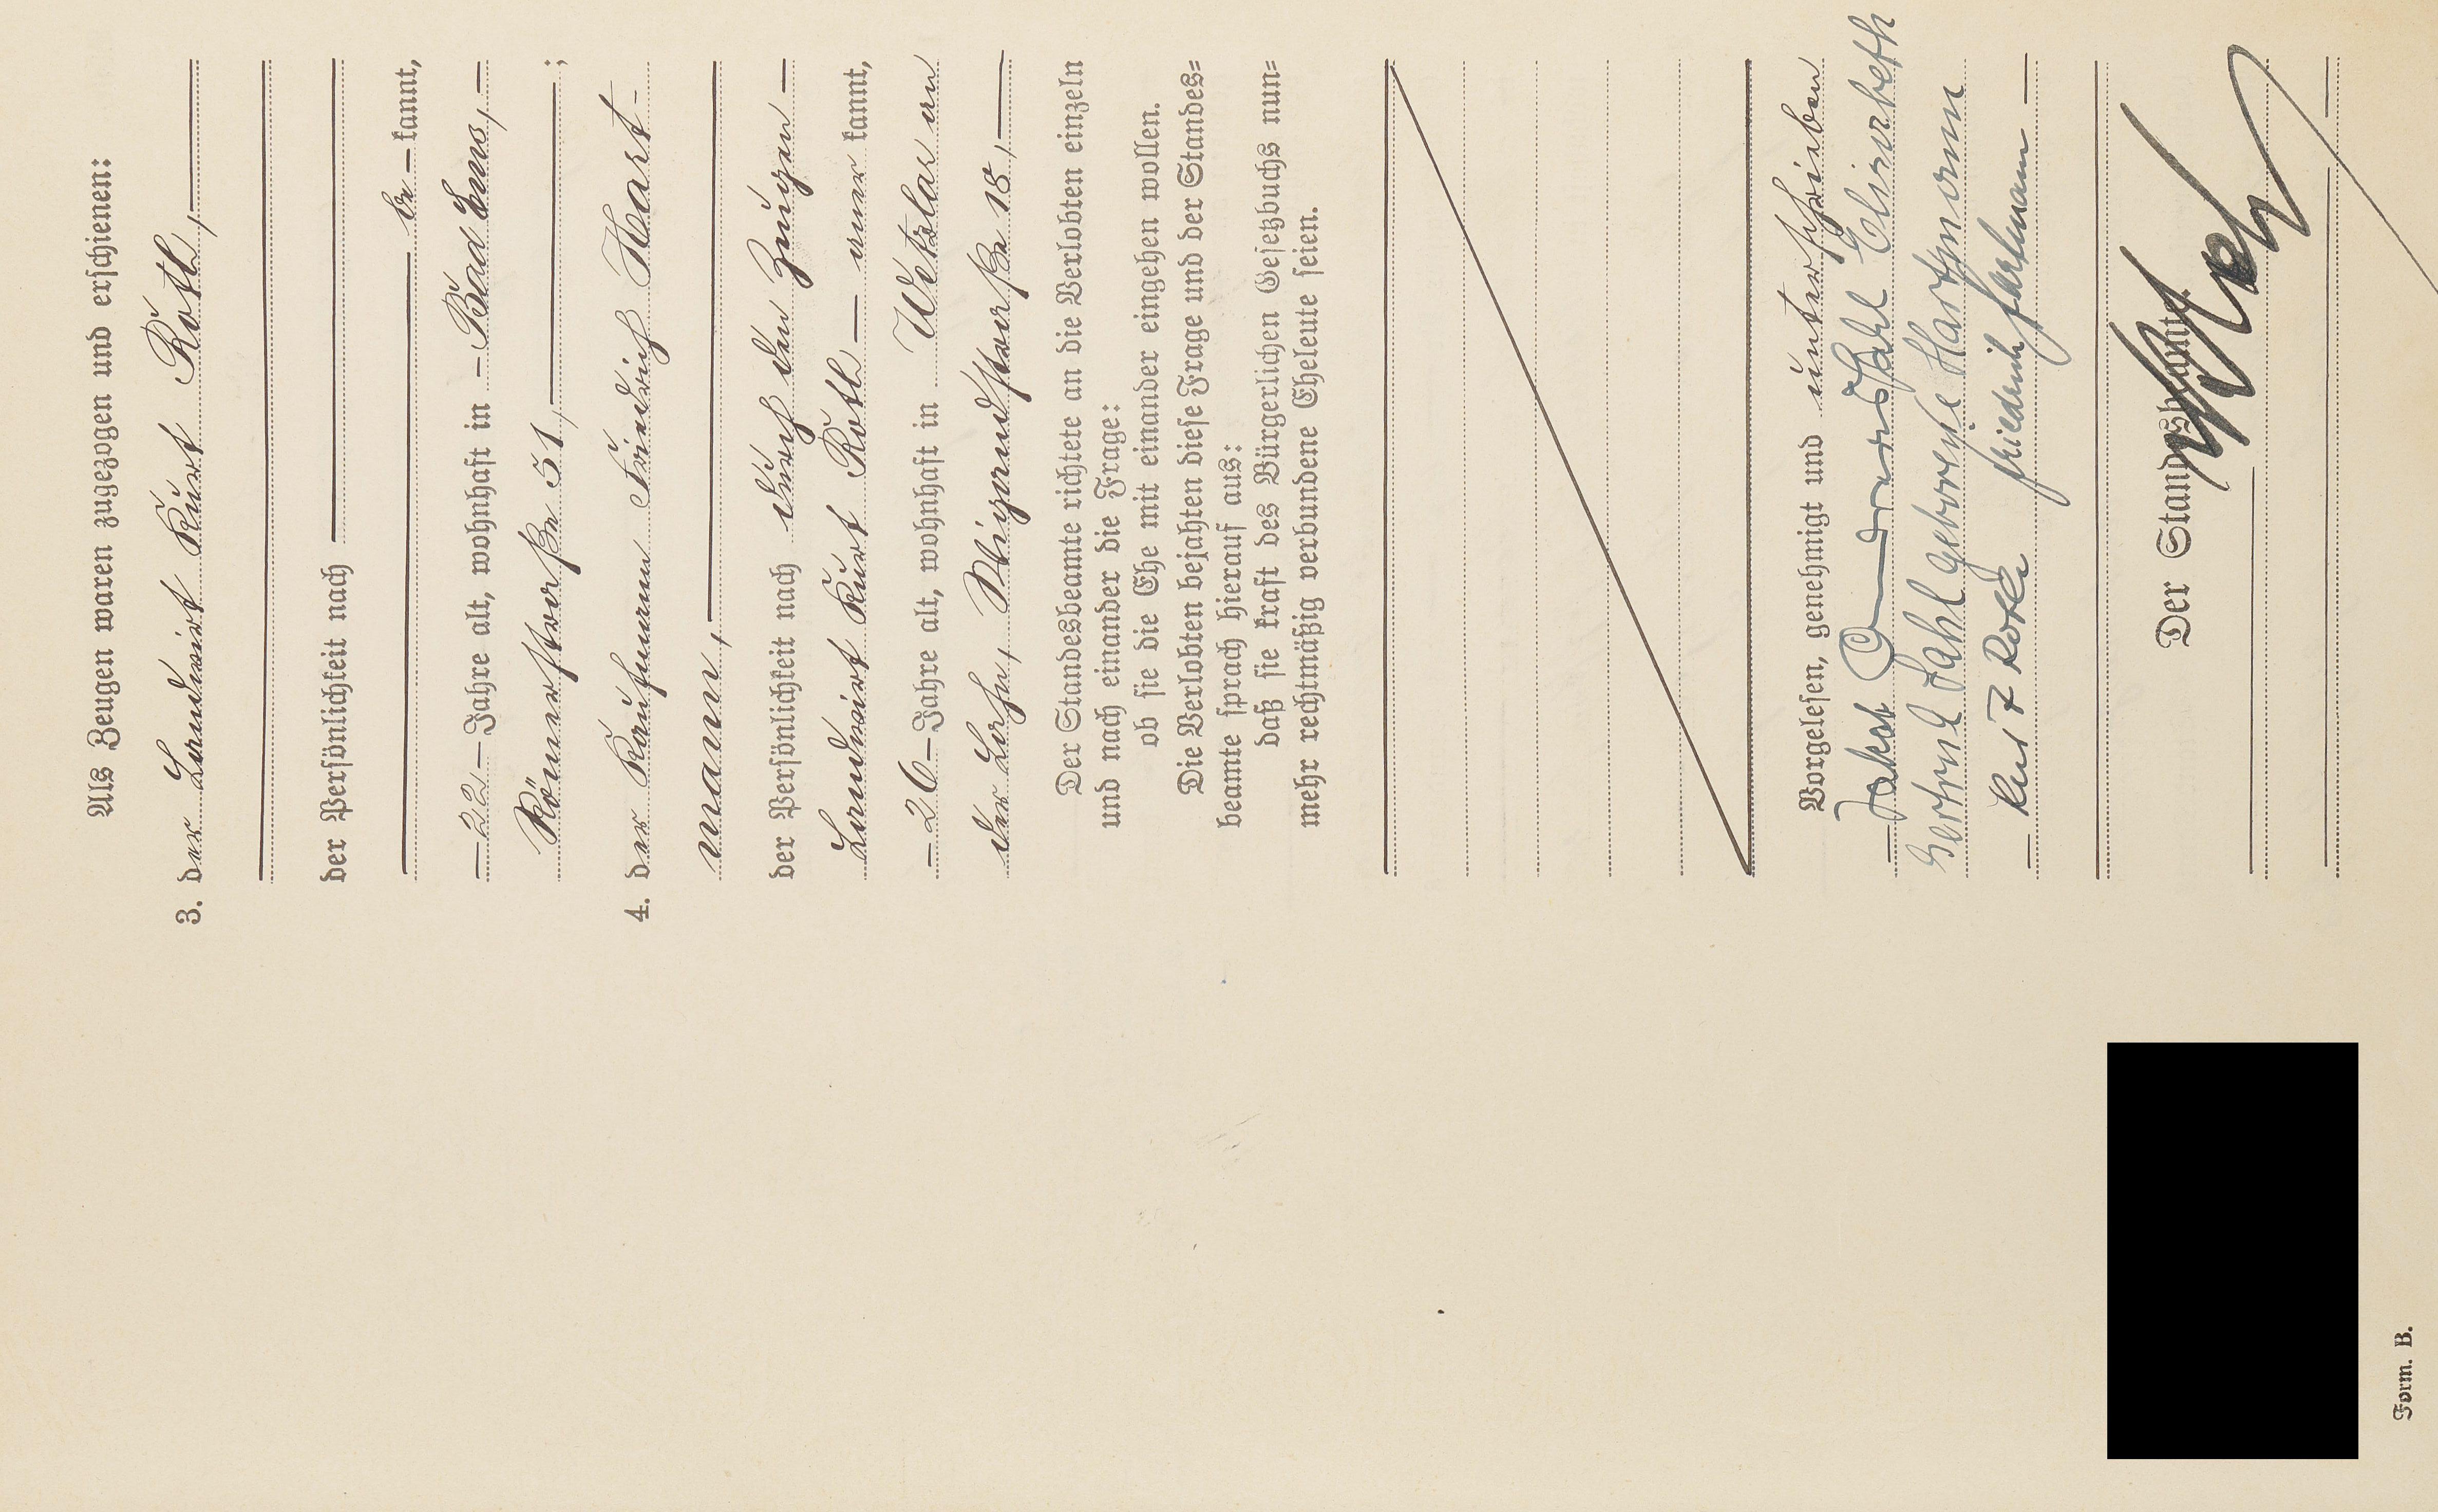 Als Zeugen waren zugezogen und erschienen:
3. der Landwirt Kurt Roth,
der Persönlichkeit nach
be – kannt,
– 22 – Jahre alt, wohnhaft in – Bad Ems, –
Römerstraße 51,
;
4. der Kaufmann Friedrich Hart-
mann,
der Persönlichkeit nach durch den Zeugen –
Landwirt Kurt Roth – aner kannt,
– 26 – Jahre alt, wohnhaft in Wetzlar an
der Lahn, 18, –
Der Standesbeamte richtete an die Verlobten einzeln
und nach einander die Frage:
ob sie die Ehe mit einander eingehen wollen.
Die Verlobten bejahten diese Frage und der Standes=
beamte sprach hierauf aus:
daß sie kraft des Bürgerlichen Gesetzbuchs nun=
mehr rechtmäßig verbundene Eheleute seien.
Vorgelesen, genehmigt und unterschrieben
Elisabeth
Gertrud geborene Hartmann
– Kurt Roth Friedrich Hartmann –
Der Standesbeamte.
Form. B.